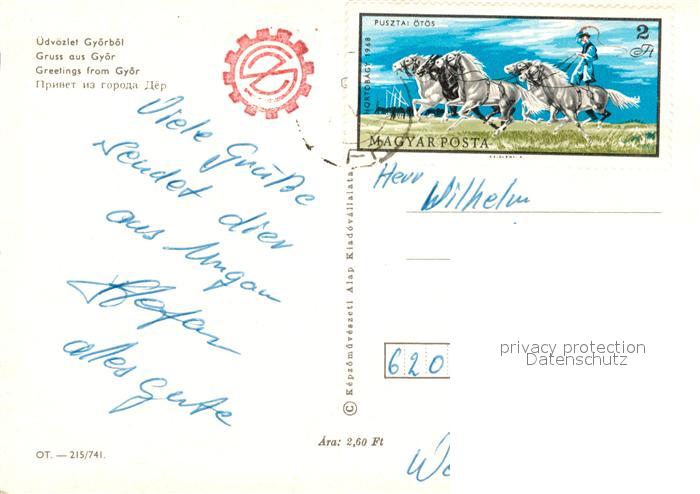 Üdvözlet Győrből
Gruss aus Győr
Greetings from Győr
Привет из города Дёр
PUSZTAI ÖTÖS
2 Ft
HORTOBÁGY 1968
MAGYAR POSTA
Viele Grüße
sendet dier
aus Ungarn
Stefan
alles gute
Herr
Wilhelm
620
privacy protection
Datenschutz
© Képzőművészeti Alap Kiadóvállalata
Ára: 2,60 Ft
OT. — 215/741.